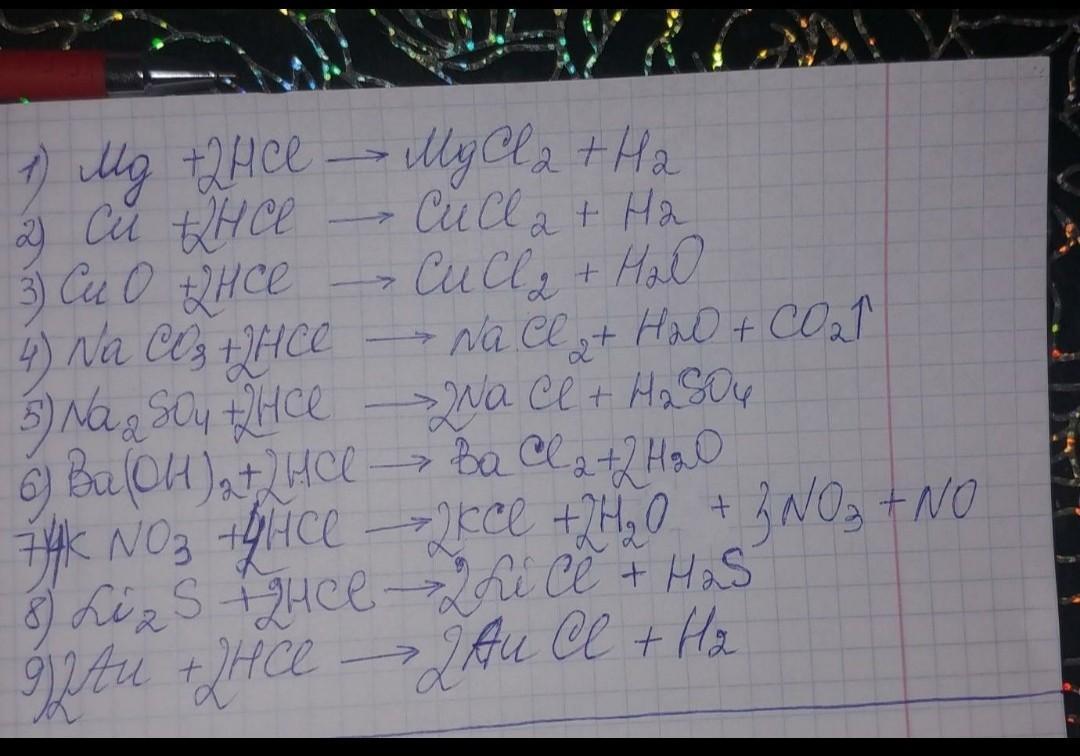 1) Mg +2HCl → MgCl2 + H2
2) Cu +2HCl → CuCl2 + H2
3) CuO +2HCl → CuCl2 + H2O
4) NaCO3 +2HCl → NaCl2 + H2O + CO2↑
5) Na2SO4 +2HCl → 2NaCl + H2SO4
6) Ba(OH)2 +2HCl → BaCl2 +2H2O
7) 4KNO3 +4HCl → 2KCl +2H2O + 3NO3 + NO
8) Li2S +2HCl → 2LiCl + H2S
9) 2Au +2HCl → 2AuCl + H2